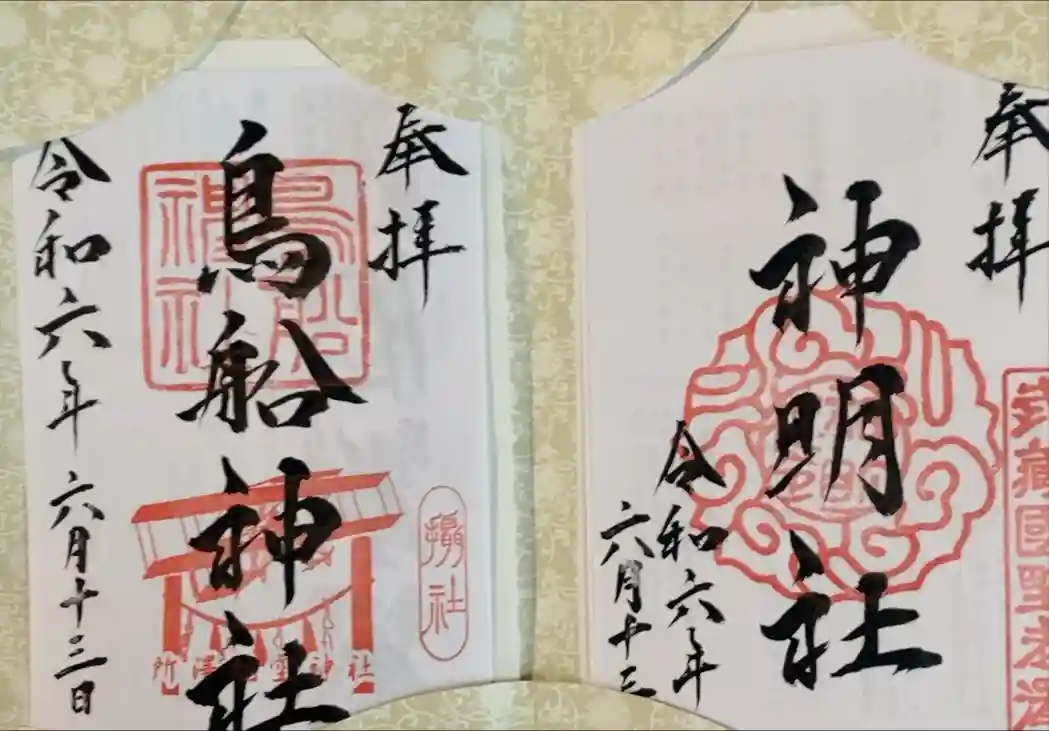 奉拝
鳥船神社
令和六年
六月十三日
鳥船
神社
摂社
所澤神明社
奉拝
神明社
令和六年
六月十三
武蔵國野老澤